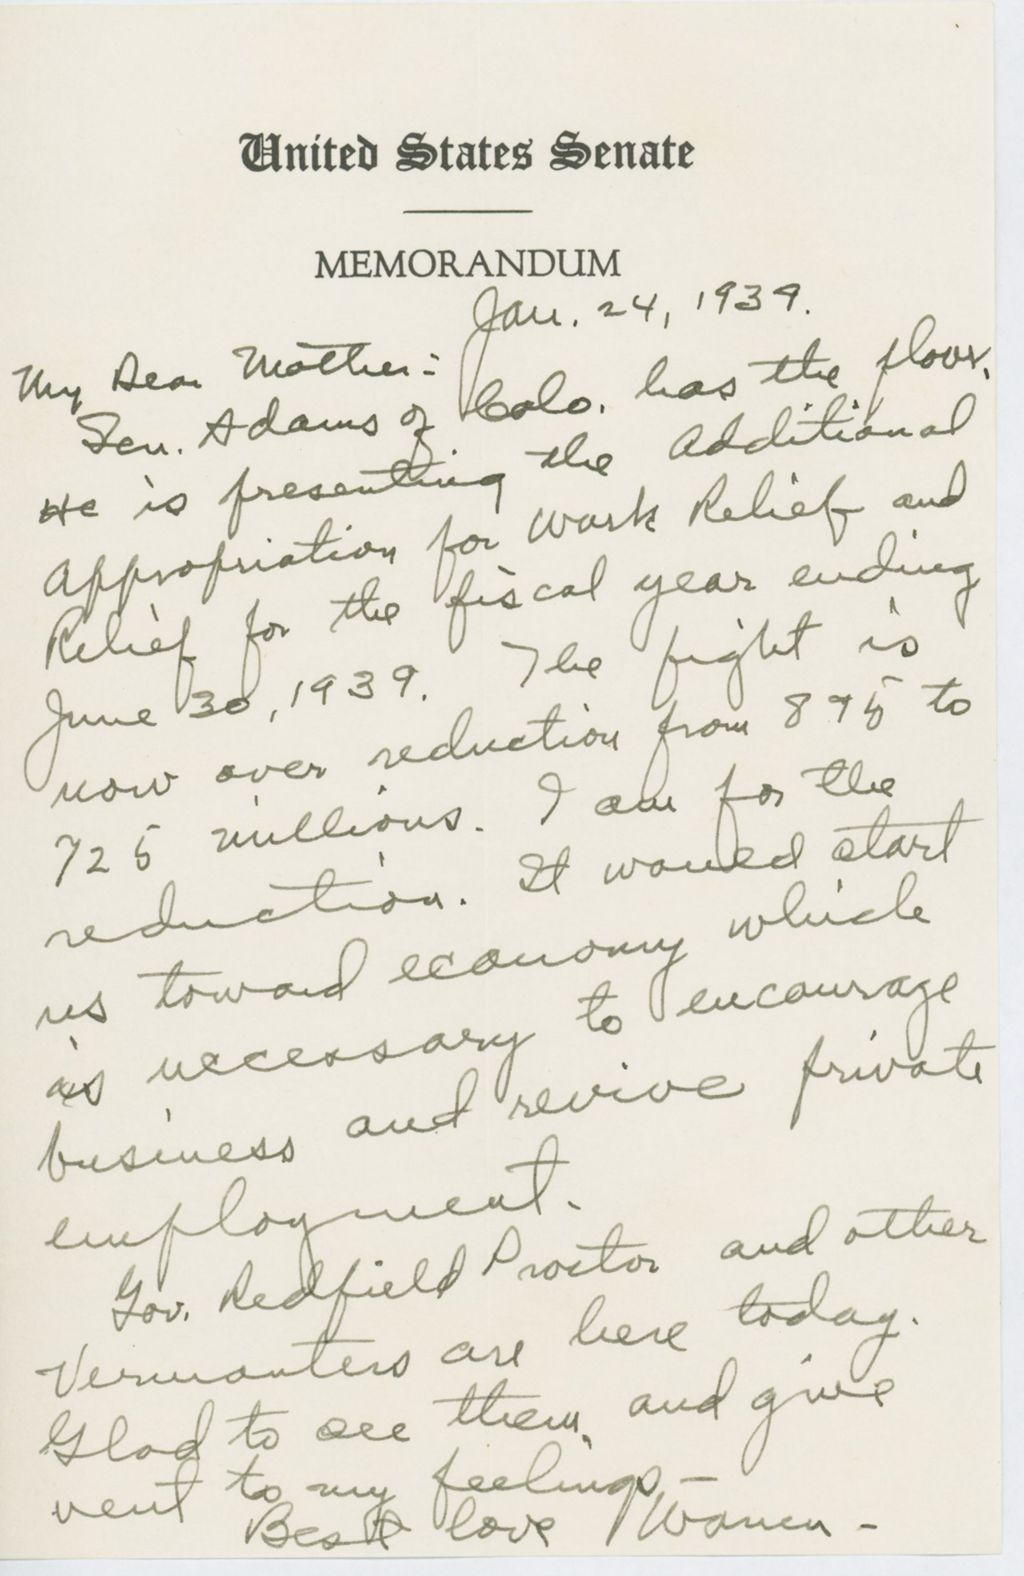 United States Senate
MEMORANDUM
Jan. 24, 1939.
My Dear Mother:-
Sen. Adams of Colo. has the floor.
He is presenting the Additional
Appropriation for Work Relief and
Relief for the fiscal year ending
June 30, 1939. The fight is
now over reduction from 875 to
725 millions. I am for the
reduction. It would start
us toward economy which
is necessary to encourage
business and revive private
employment.
Gov. Redfield Proctor and other
Vermonters are here today.
Glad to see them, and give
vent to my feelings –
Best love Warren –